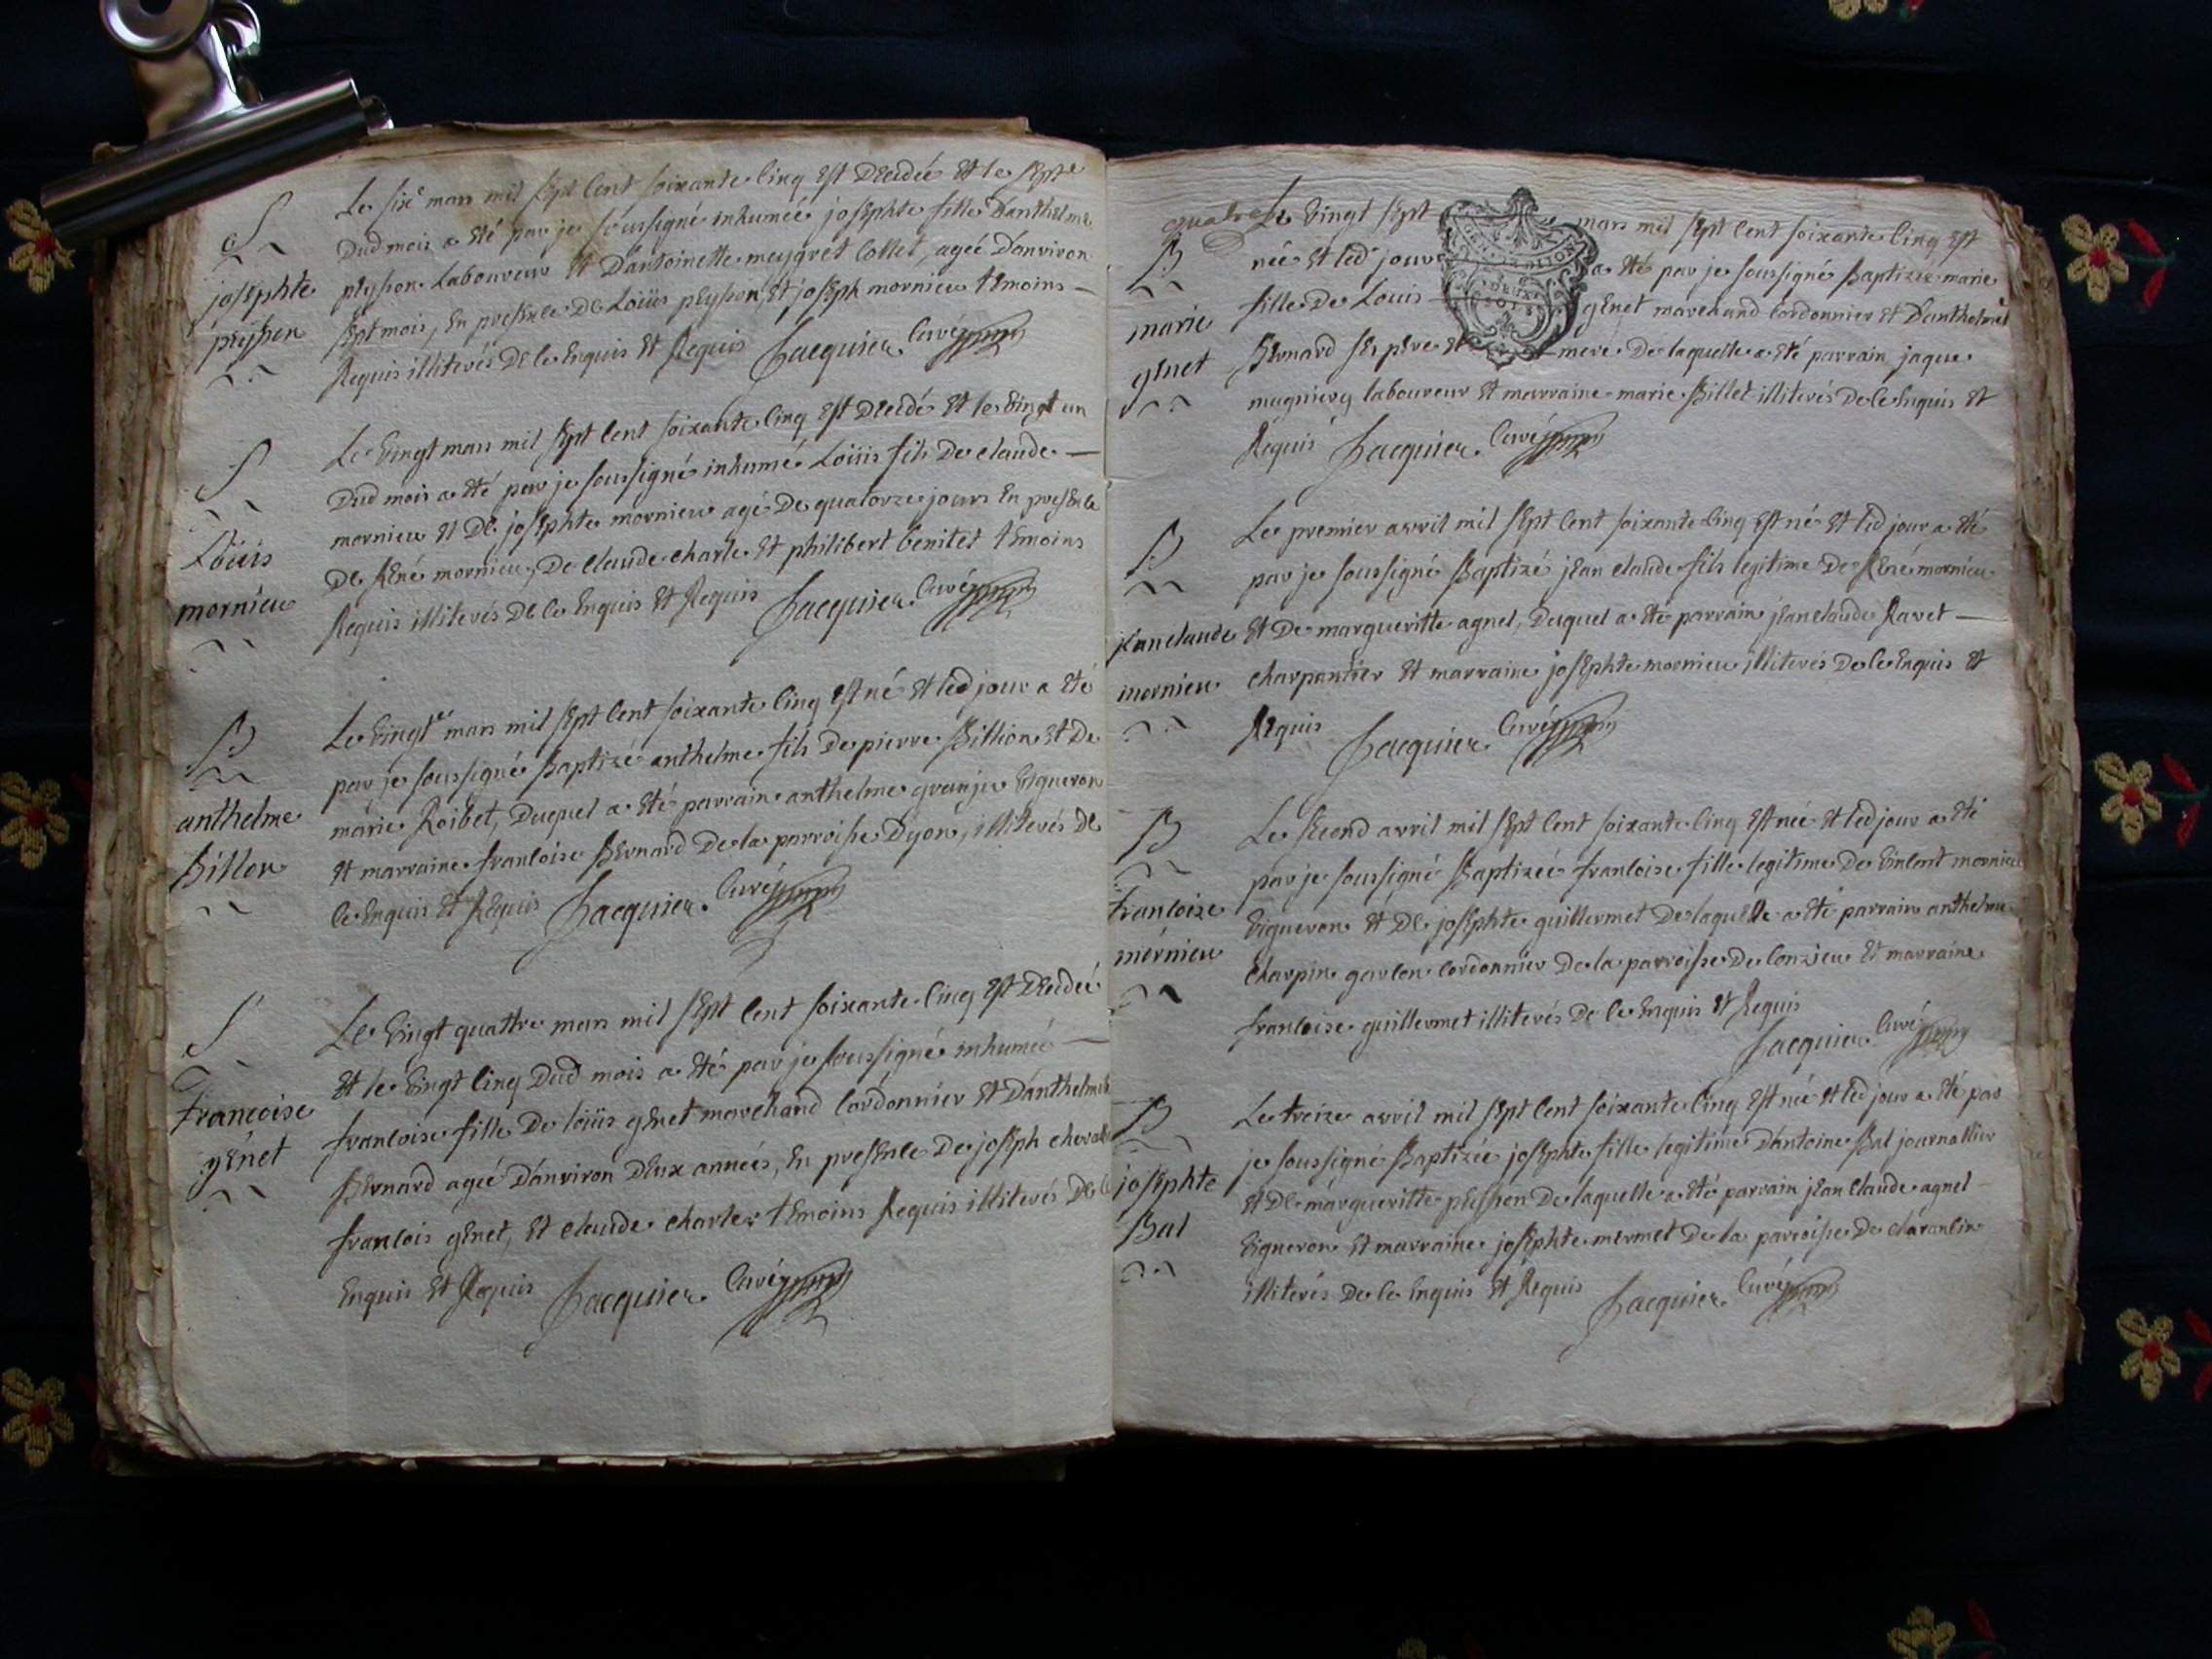 S
josephte
peysson
Le sixe mars mil sept cent soixante cinq est decedée et le septe
dud mois a eté par je soussigné inhumée josephte fille d'anthelme
peysson laboureur et d'antoinette meygret collet, agée d'anviron
sept mois, en presence de Loüis peysson, et joseph mornieu temoins
Requis illiterés de ce enquis et Requis Jacquier curé
S
Loüis
mornieu
Le vingt mars mil sept cent soixante cinq est decedé et le vingt un
dud mois a eté par je soussigné inhumé Loüis fils de claude
mornieu et de josephte mornieu agé de quatorze jours en presence
de René mornieu, de claude charle et philibert benitet temoins
Requis illiterés de ce enquis et Requis Jacquier curé
B
anthelme
Billon
Le vingt mars mil sept cent soixante cinq est né et led jour a eté
par je soussigné Baptizé anthelme fils de pierre Billion et de
marie Roibet, duquel a eté parrain anthelme granju vigneron
et marraine francoise Bernard de la parroisse dyon, illiterés de
ce enquis et Requis Jacquier curé
S
Francoise
genet
Le vingt quattre mars mil sept cent soixante cinq est decedée
et le vingt cinq dud mois a eté par je soussigné inhumée
francoise fille de loüis genet marchand cordonnier et d'anthelme
Bernard agée d'anviron deux années, en presence de joseph
francois genet, et claude charle temoins Requis illiterés de ce
enquis et Requis Jacquier curé
quatre
B
marie
genet
Le vingt sept mars mil sept cent soixante cinq est
née et led jour a eté par je soussigné Baptizée marie
fille de Louis genet marchand cordonnier et d'anthelme
Bernard ses pere et mere de laquelle a eté parrain jaque
mugniery laboureur et marraine marie Billet illiterés de ce enquis et
Requis Jacquier curé
B
jean claude
mornieu
Le premier avril mil sept cent soixante cinq est né et led jour a eté
par je soussigné Baptizé jean claude fils legitime de René mornieu
et de margueritte agnel, duquel a eté parrain jean claude Ravet
charpantier et marraine josephte mornieu illiterés de ce enquis et
Requis Jacquier curé
B
francoise
mornieu
Le second avril mil sept cent soixante cinq est née et led jour a eté
par je soussigné Baptizée francoise fille legitime de vincent mornieu
vigneron et de josephte guillermet de laquelle a eté parrain anthelme
charpin garcon cordonnier de la parroisse de conzieu et marraine
francoise guillermet illiterés de ce enquis et Requis
Jacquier curé
B
josephte
Bal
Le treize avril mil sept cent soixante cinq est née et led jour a eté par
je soussigné Baptizée josephte fille legitime d'antoine Bal journallier
et de margueritte peysson de laquelle a eté parrain jean claude agnel
vigneron et marraine josephte mermet de la parroisse de charanlin
illiterés de ce enquis et Requis Jacquier curé